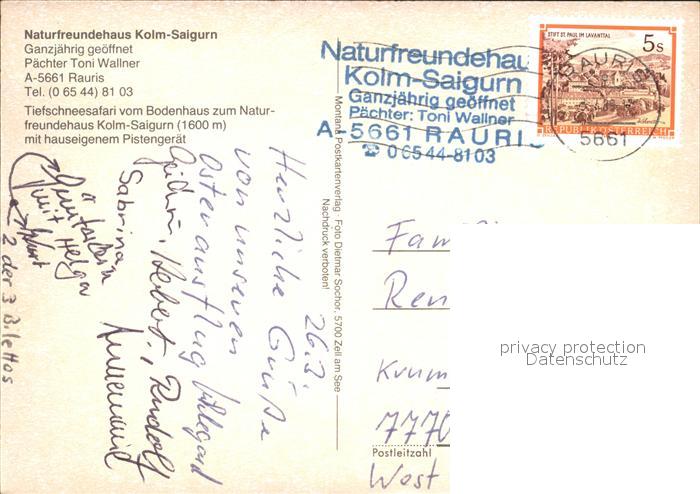 Naturfreundehaus Kolm-Saigurn
Ganzjährig geöffnet
Pächter Toni Wallner
A-5661 Rauris
Tel. (0 65 44) 81 03
Tiefschneesafari vom Bodenhaus zum Natur-
freundehaus Kolm-Saigurn (1600 m)
mit hauseigenem Pistengerät
Naturfreundehau
Kolm-Saigurn
Ganzjährig geöffnet
Pächter: Toni Wallner
A-5661 RAURIS
☎ 0 65 44-81 03
STIFT ST. PAUL IM LAVANTTAL
5 S
REPUBLIK ÖSTERREICH
RAURIS
5661
Montana Postkartenverlag · Foto Dietmar Sochor, 5700 Zell am See
Nachdruck verboten!
26.3.
Herzliche Grüße
von unserem
Osterausflug Hildegard
Herbert, Rudolf
Sabrina
mit Helga
2 der 3 Bilettos
Fam
Ren
Krum
7770
Postleitzahl
West
privacy protection
Datenschutz